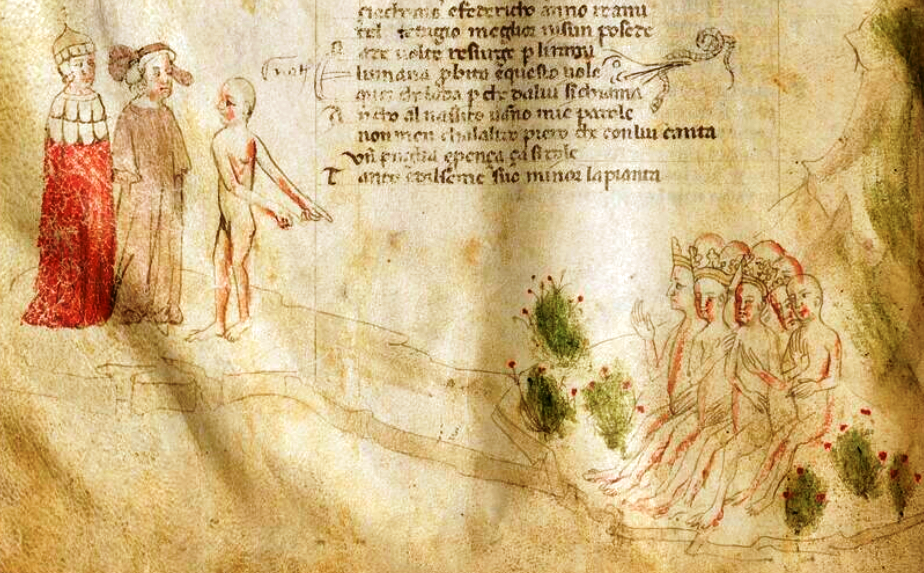 efedericho anno reami
del retagio meglior nisun posede
ade uolte resurge p li ramy
lumana pbita equesto uole
quei che la da p che da lui si chiama
ncho al nasuto uano mie parole
non men chalaltro piero che con lui canta
pugla epenca ga si dole
T ante suo minor la pianta